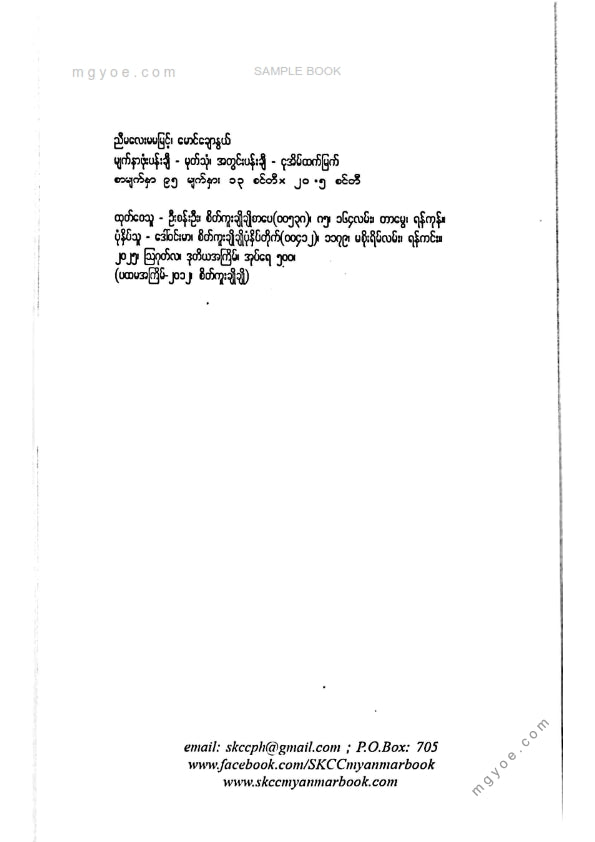 mgyoe.com
SAMPLE BOOK
ညီမလေးမမမြင့်၊ မောင်ချောနွယ်
မျက်နှာဖုံးပန်းချီ - မုတ်သုံ၊ အတွင်းပန်းချီ - ငုအိမ်ထက်မြက်
စာမျက်နှာ ၉၅ မျက်နှာ၊ ၁၃ စင်တီ× ၂၀ .၅ စင်တီ
ထုတ်ဝေသူ - ဦးစန်းဦး၊ စိတ်ကူးချိုချိုစာပေ(၀၀၅၃၈)၊ ဂ၅၊ ၁၆၄လမ်း၊ တာမွေ၊ ရန်ကုန်။
ပုံနှိပ်သူ - ဒေါ်ဝင်းမာ၊ စိတ်ကူးချိုချိုပုံနှိပ်တိုက်(၀၀၄၁၂)၊ ၁၁၇၉၊ မစိုးရိမ်လမ်း၊ ရန်ကင်း။
၂၀၂၅၊ ဩဂုတ်လ၊ ဒုတိယအကြိမ်၊ အုပ်ရေ ၅၀၀၊
(ပထမအကြိမ်-၂၀၁၂၊ စိတ်ကူးချိုချို)
email: skccph@gmail.com ; P.O.Box: 705
www.facebook.com/SKCCmyanmarbook
www.skccmyanmarbook.com
mgyoe.com